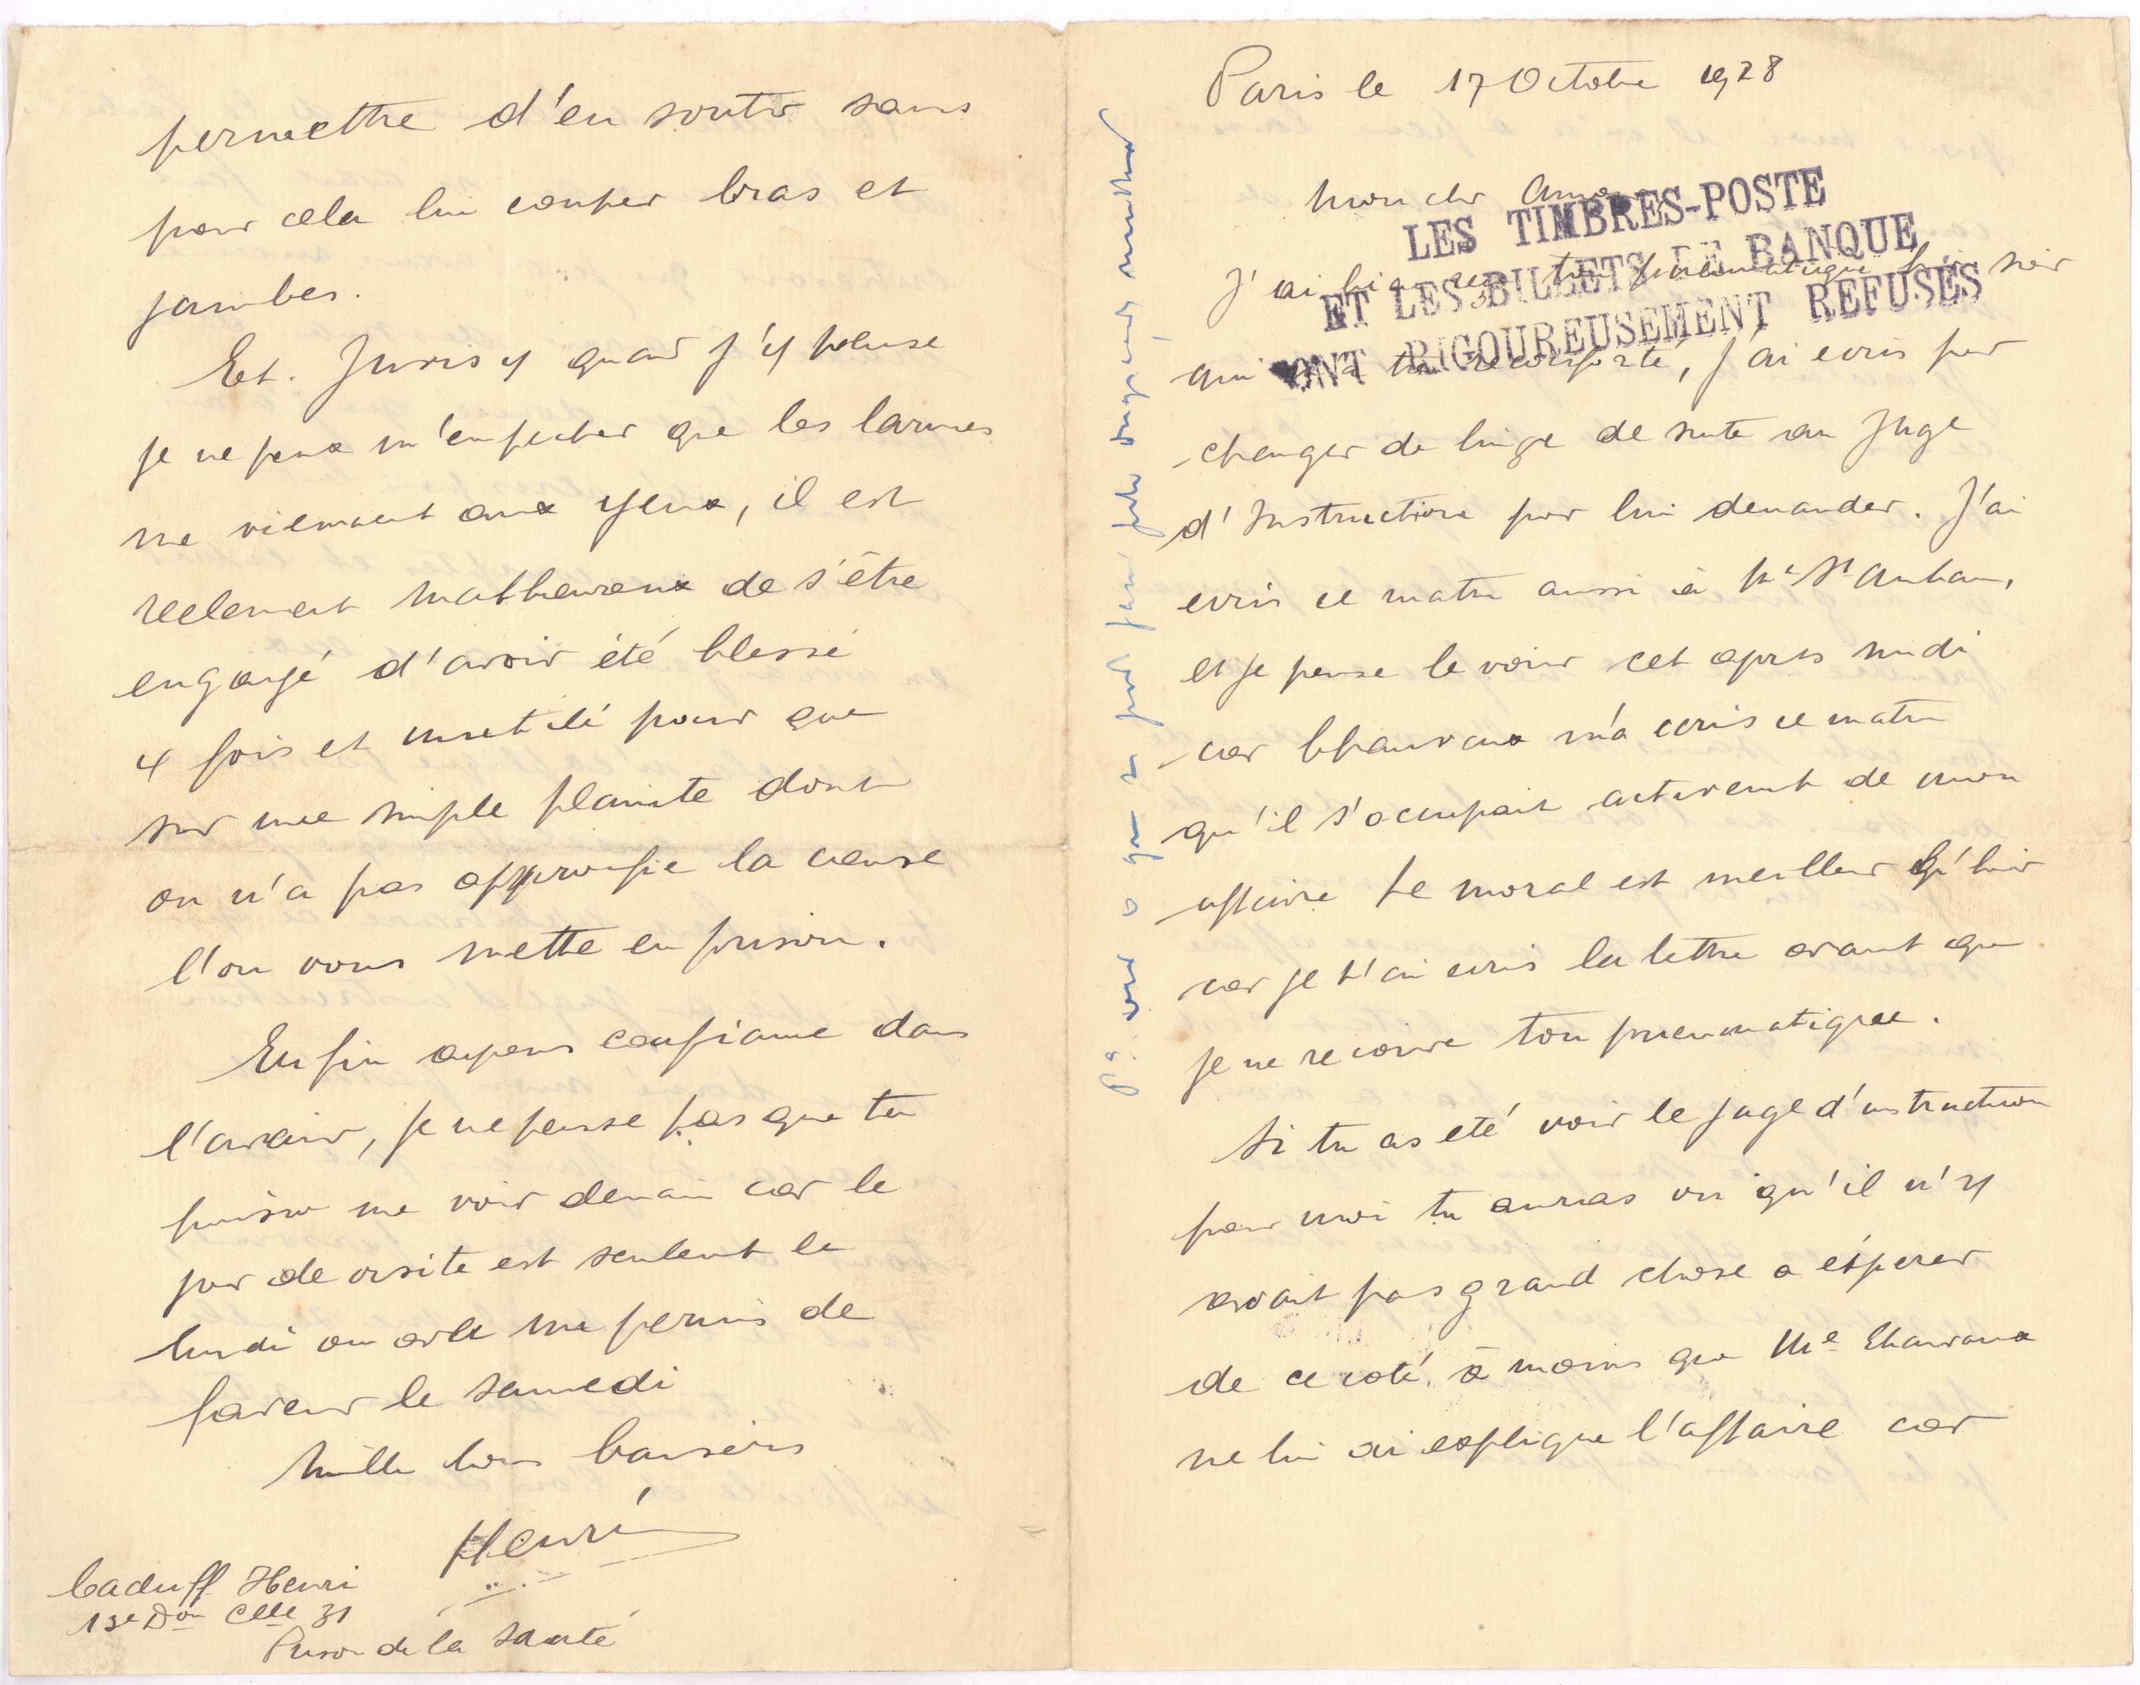 Paris le 17 Octobre 1928
Mon cher Amour
LES TIMBRES-POSTE
ET LES BILLETS DE BANQUE
SONT RIGOUREUSEMENT REFUSÉS
J'ai bien reçu ton pneumatique hier soir
qui m'a reconforté, j'ai ecris pour
changer de linge de suite au Juge
d'Instruction pour lui demander. J'ai
ecris ce matin aussi à
et je pense le voir cet apres midi
car Chauvaux m'a ecris ce matin
qu'il s'occupait activement de mon
affaire Le moral est meilleur qu'hier
car je t'ai ecris la lettre avant que
je ne recoive ton pneumatique.
Si tu as eté voir le juge d'instruction
pour moi tu auras vu qu'il n'y
avait pas grand chose a ésperer
de ce coté, à moins que Me Chauvaux
ne lui ai explique l'affaire car
permettre d'en sortir sans
pour cela lui couper bras et
jambes.
Et Juvisy quand j'y pense
je ne peux m'empecher que les larmes
me viennent aux yeux, il est
reelement malheureux de s'être
engagé d'avoir été blessé
4 fois et mutilé pour que
sur une simple plainte dont
on n'a pas approfie la cause
l'on vous mette en prison.
Enfin ayons confiance dans
l'avenir, je ne pense pas que tu
puisse me voir demain car le
jour de visite est seulemt le
lundi ou avec un permis de
faveur le samedi
Mille bons baisers
Henri
Caduff Henri
13e Don Clle 31
Prison de la Santé